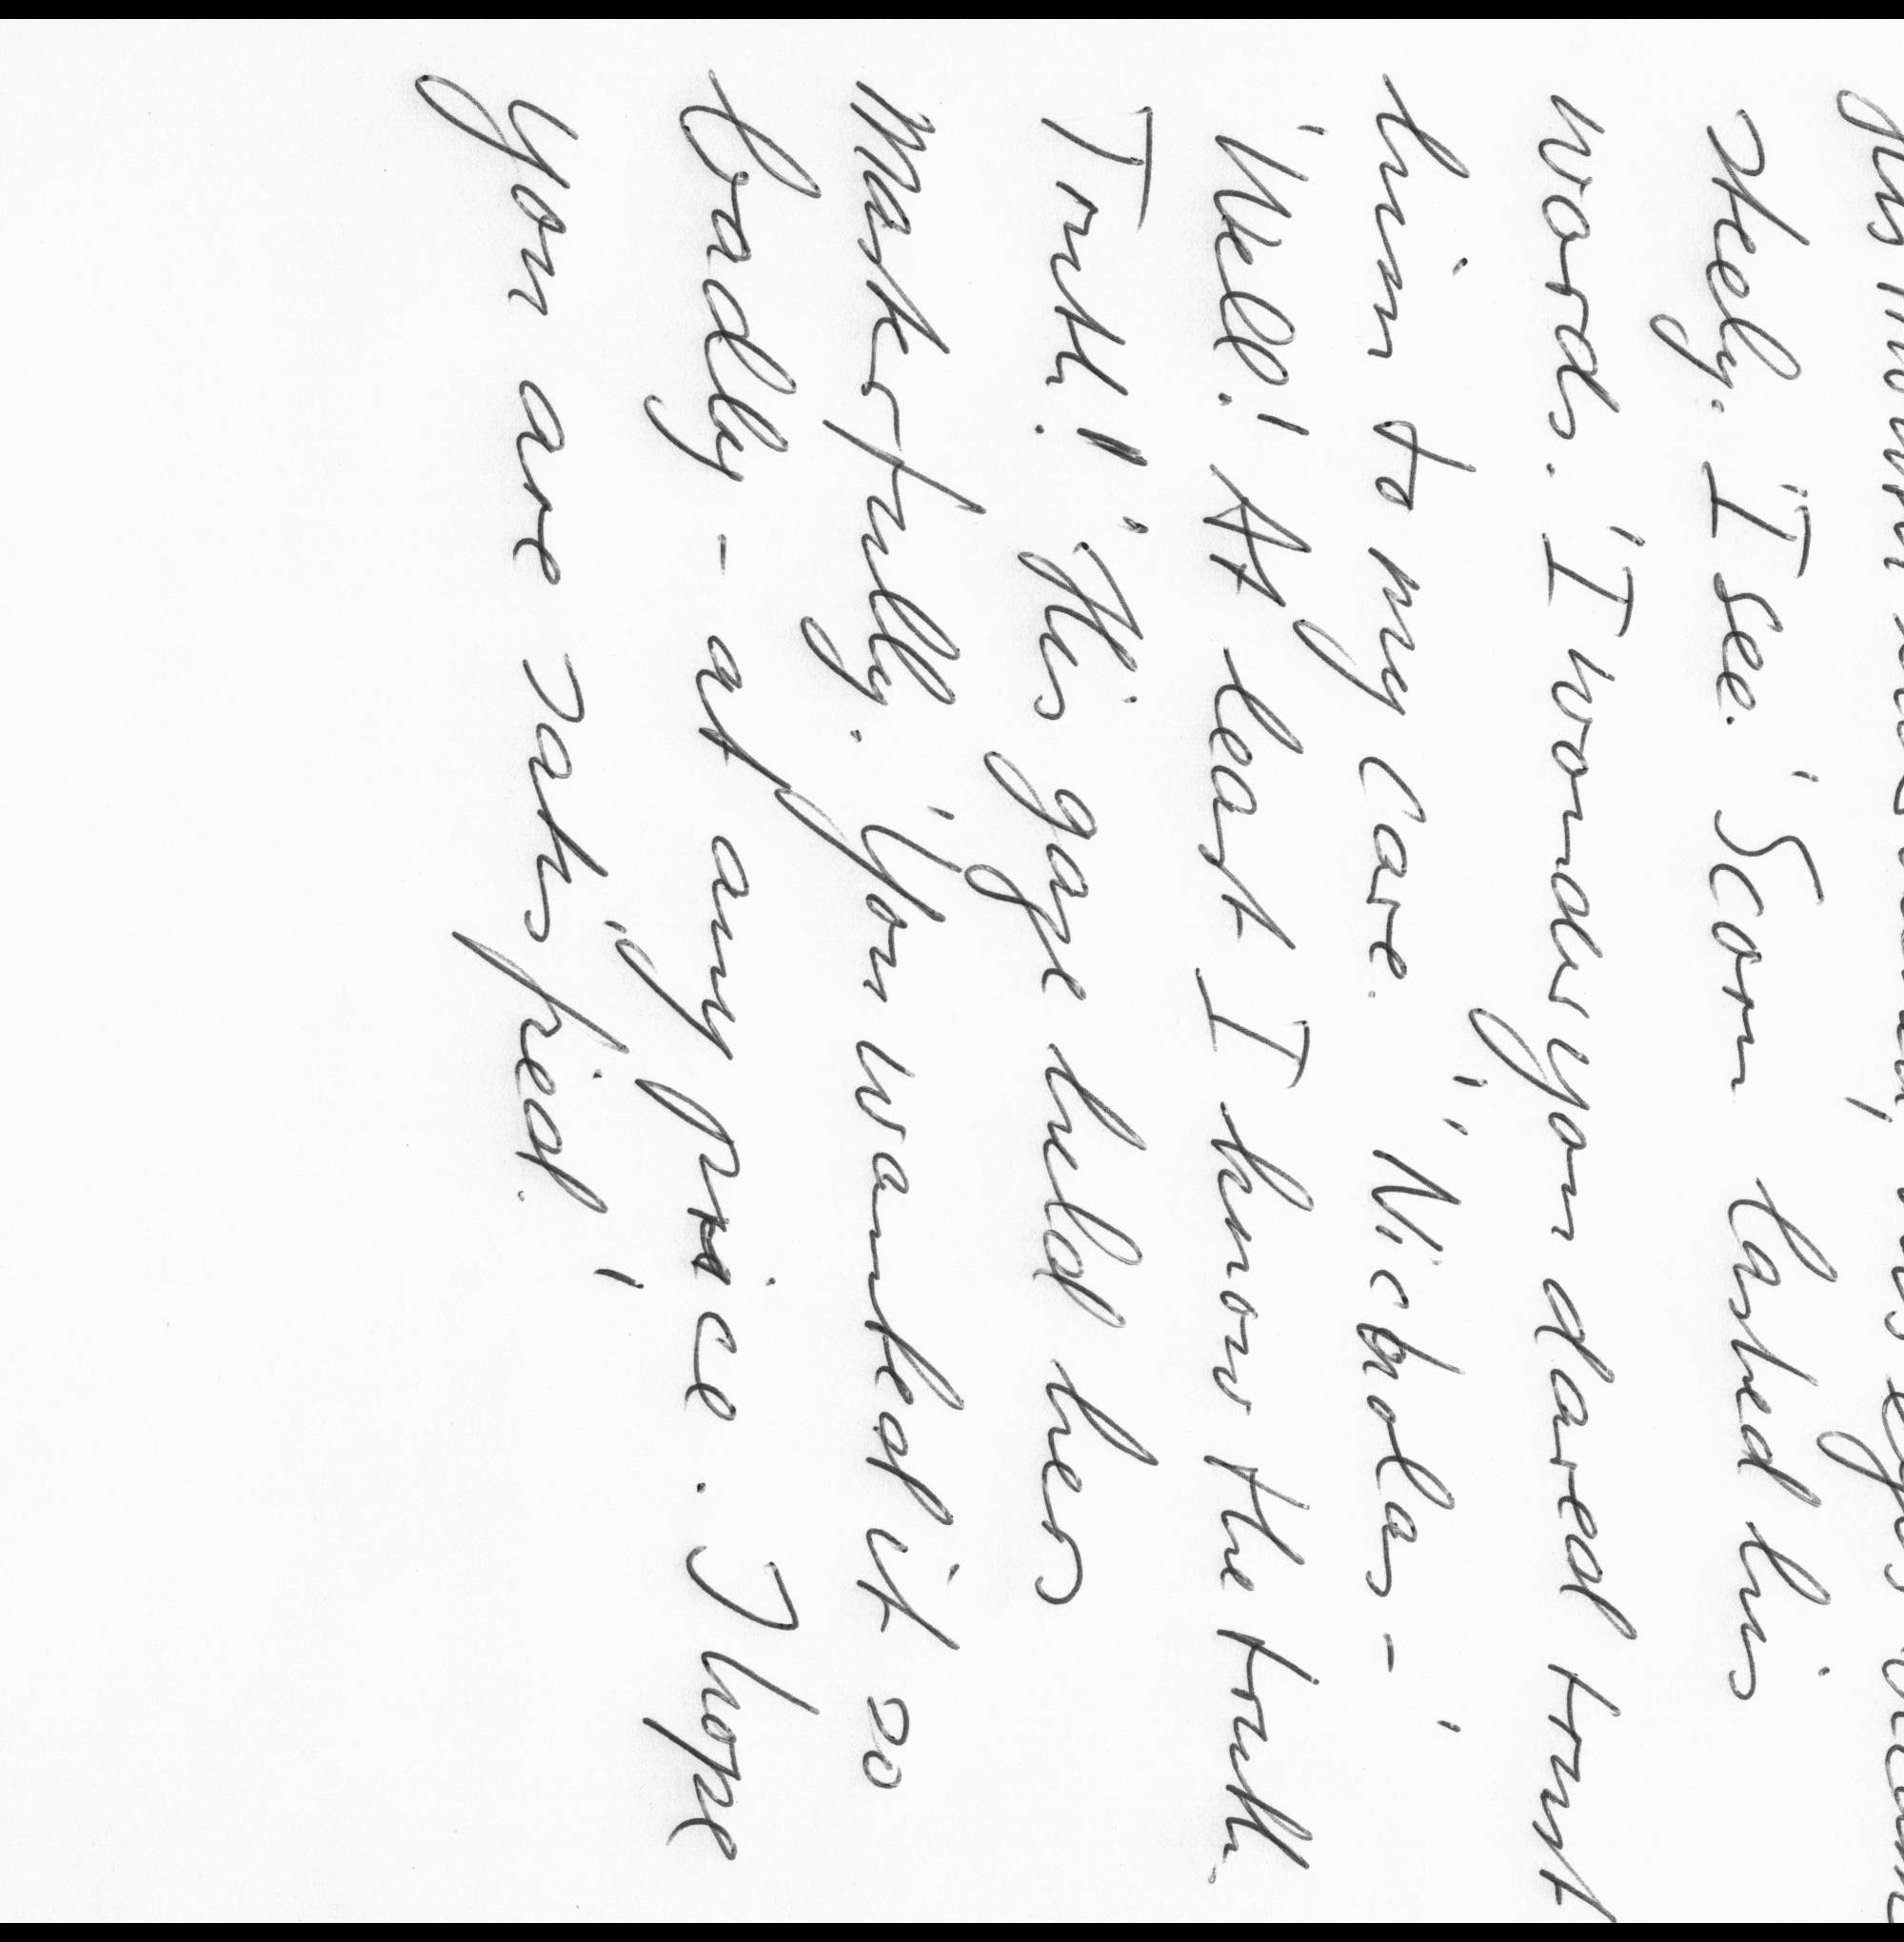 His mouth
steely. 'I see.' Scorn lashed his
words. 'I wonder you dared trust
him to my care.' 'Nicholas - '
'Well! At least I know the truth.
Truth!' His gaze held hers
masterfully. 'You wanted it so
badly - at any price. I hope
you are satisfied.'